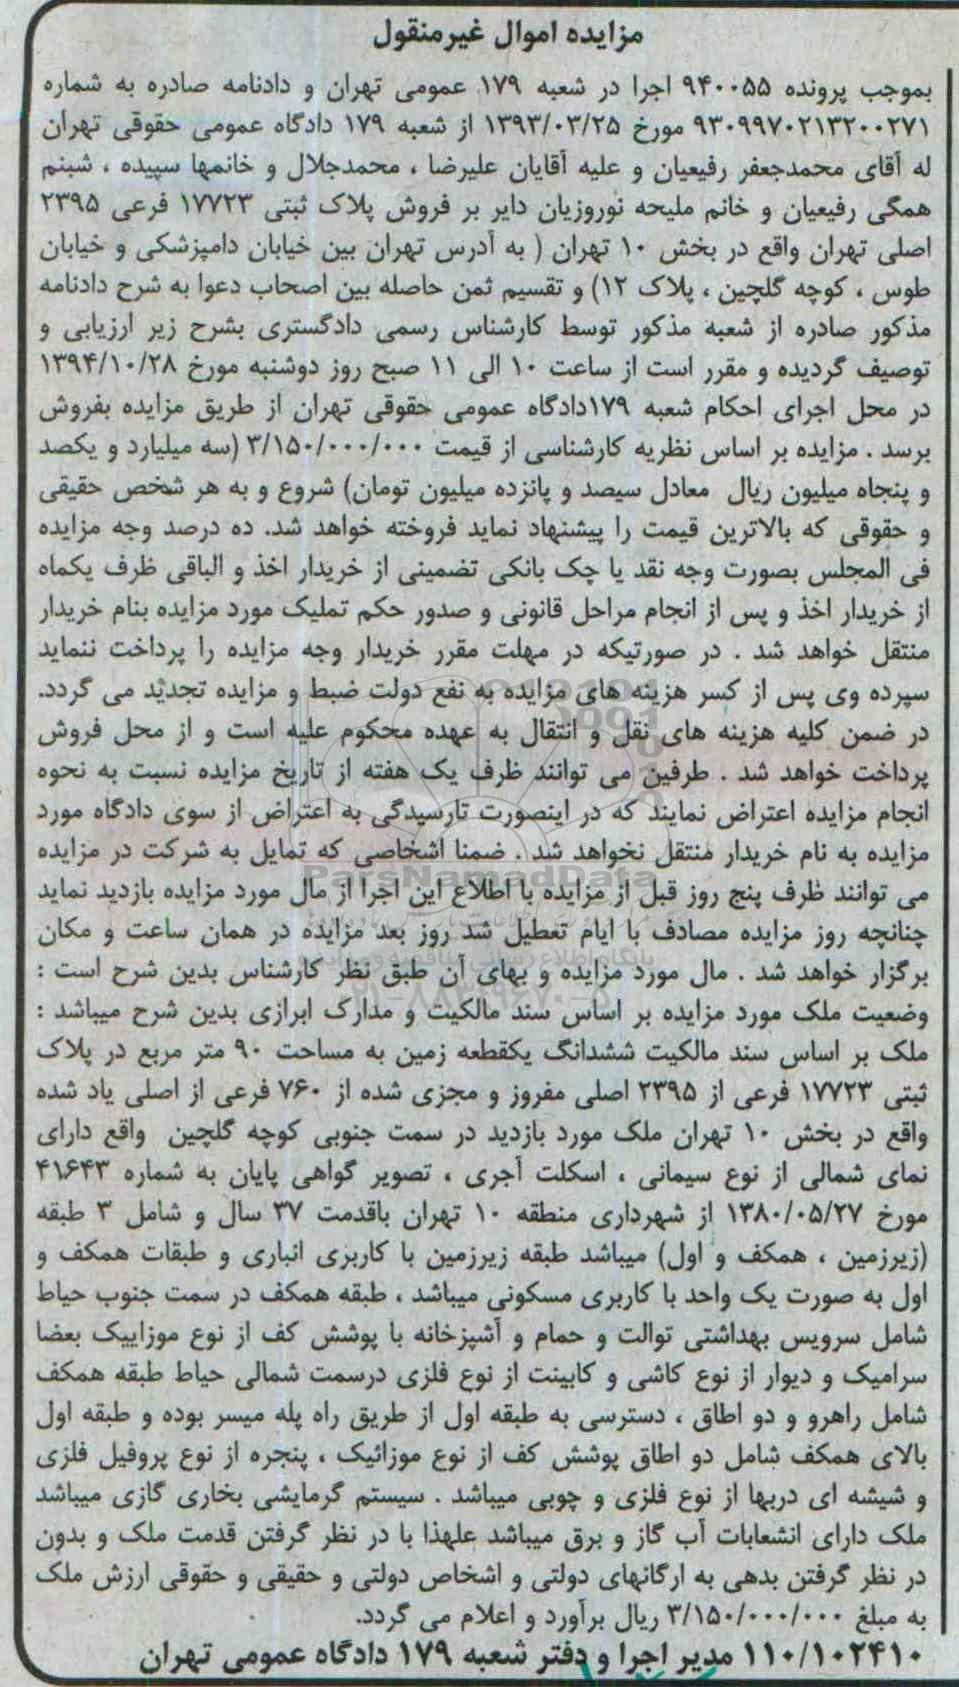 مزایده اموال غیرمنقول
بموجب پرونده ۹۴۰۰۵۵ اجرا در شعبه ۱۷۹ عمومی تهران و دادنامه صادره به شماره
۹۳۰۹۹۷۰۲۱۳۲۰۰۲۷۱ مورخ ۱۳۹۳/۰۳/۲۵ از شعبه ۱۷۹ دادگاه عمومی حقوقی تهران
له آقای محمدجعفر رفیعیان و علیه آقایان علیرضا ، محمدجلال و خانمها سپیده ، شبنم
همگی رفیعیان و خانم ملیحه نوروزیان دایر بر فروش پلاک ثبتی ۱۷۷۲۳ فرعی ۲۳۹۵
اصلی تهران واقع در بخش ۱۰ تهران ( به آدرس تهران بین خیابان دامپزشکی و خیابان
طوس ، کوچه گلچین ، پلاک ۱۲) و تقسیم ثمن حاصله بین اصحاب دعوا به شرح دادنامه
مذکور صادره از شعبه مذکور توسط کارشناس رسمی دادگستری بشرح زیر ارزیابی و
توصیف گردیده و مقرر است از ساعت ۱۰ الی ۱۱ صبح روز دوشنبه مورخ ۱۳۹۴/۱۰/۲۸
در محل اجرای احکام شعبه ۱۷۹دادگاه عمومی حقوقی تهران از طریق مزایده بفروش
برسد . مزایده بر اساس نظریه کارشناسی از قیمت ۳/۱۵۰/۰۰۰/۰۰۰ (سه میلیارد و یکصد
و پنجاه میلیون ریال معادل سیصد و پانزده میلیون تومان) شروع و به هر شخص حقیقی
و حقوقی که بالاترین قیمت را پیشنهاد نماید فروخته خواهد شد. ده درصد وجه مزایده
فی المجلس بصورت وجه نقد یا چک بانکی تضمینی از خریدار اخذ و الباقی ظرف یکماه
از خریدار اخذ و پس از انجام مراحل قانونی و صدور حکم تملیک مورد مزایده بنام خریدار
منتقل خواهد شد . در صورتیکه در مهلت مقرر خریدار وجه مزایده را پرداخت ننماید
سپرده وی پس از کسر هزینه های مزایده به نفع دولت ضبط و مزایده تجدید می گردد.
در ضمن کلیه هزینه های نقل و انتقال به عهده محکوم علیه است و از محل فروش
پرداخت خواهد شد . طرفین می توانند ظرف یک هفته از تاریخ مزایده نسبت به نحوه
انجام مزایده اعتراض نمایند که در اینصورت تارسیدگی به اعتراض از سوی دادگاه مورد
مزایده به نام خریدار منتقل نخواهد شد . ضمنا اشخاصی که تمایل به شرکت در مزایده
ParsNamadData
می توانند ظرف پنج روز قبل از مزایده با اطلاع این اجرا از مال مورد مزایده بازدید نماید
چنانچه روز مزایده مصادف با ایام تعطیل شد روز بعد مزایده در همان ساعت و مکان
برگزار خواهد شد . مال مورد مزایده و بهای آن طبق نظر کارشناس بدین شرح است :
۰۲۱-۸۸۳۴۹۶۷۰-۵
وضعیت ملک مورد مزایده بر اساس سند مالکیت و مدارک ابرازی بدین شرح میباشد :
ملک بر اساس سند مالکیت ششدانگ یکقطعه زمین به مساحت ۹۰ متر مربع در پلاک
ثبتی ۱۷۷۲۳ فرعی از ۲۳۹۵ اصلی مفروز و مجزی شده از ۷۶۰ فرعی از اصلی یاد شده
واقع در بخش ۱۰ تهران ملک مورد بازدید در سمت جنوبی کوچه گلچین واقع دارای
نمای شمالی از نوع سیمانی ، اسکلت آجری ، تصویر گواهی پایان به شماره ۴۱۶۴۳
مورخ ۱۳۸۰/۰۵/۲۷ از شهرداری منطقه ۱۰ تهران باقدمت ۳۷ سال و شامل ۳ طبقه
(زیرزمین ، همکف و اول) میباشد طبقه زیرزمین با کاربری انباری و طبقات همکف و
اول به صورت یک واحد با کاربری مسکونی میباشد ، طبقه همکف در سمت جنوب حیاط
شامل سرویس بهداشتی توالت و حمام و آشپزخانه با پوشش کف از نوع موزاییک بعضا
سرامیک و دیوار از نوع کاشی و کابینت از نوع فلزی درسمت شمالی حیاط طبقه همکف
شامل راهرو و دو اطاق ، دسترسی به طبقه اول از طریق راه پله میسر بوده و طبقه اول
بالای همکف شامل دو اطاق پوشش کف از نوع موزائیک ، پنجره از نوع پروفیل فلزی
و شیشه ای دربها از نوع فلزی و چوبی میباشد . سیستم گرمایشی بخاری گازی میباشد
ملک دارای انشعابات آب گاز و برق میباشد علهذا با در نظر گرفتن قدمت ملک و بدون
در نظر گرفتن بدهی به ارگانهای دولتی و اشخاص دولتی و حقیقی و حقوقی ارزش ملک
به مبلغ ۳/۱۵۰/۰۰۰/۰۰۰ ریال برآورد و اعلام می گردد.
۱۱۰/۱۰۲۴۱۰ مدیر اجرا و دفتر شعبه ۱۷۹ دادگاه عمومی تهران